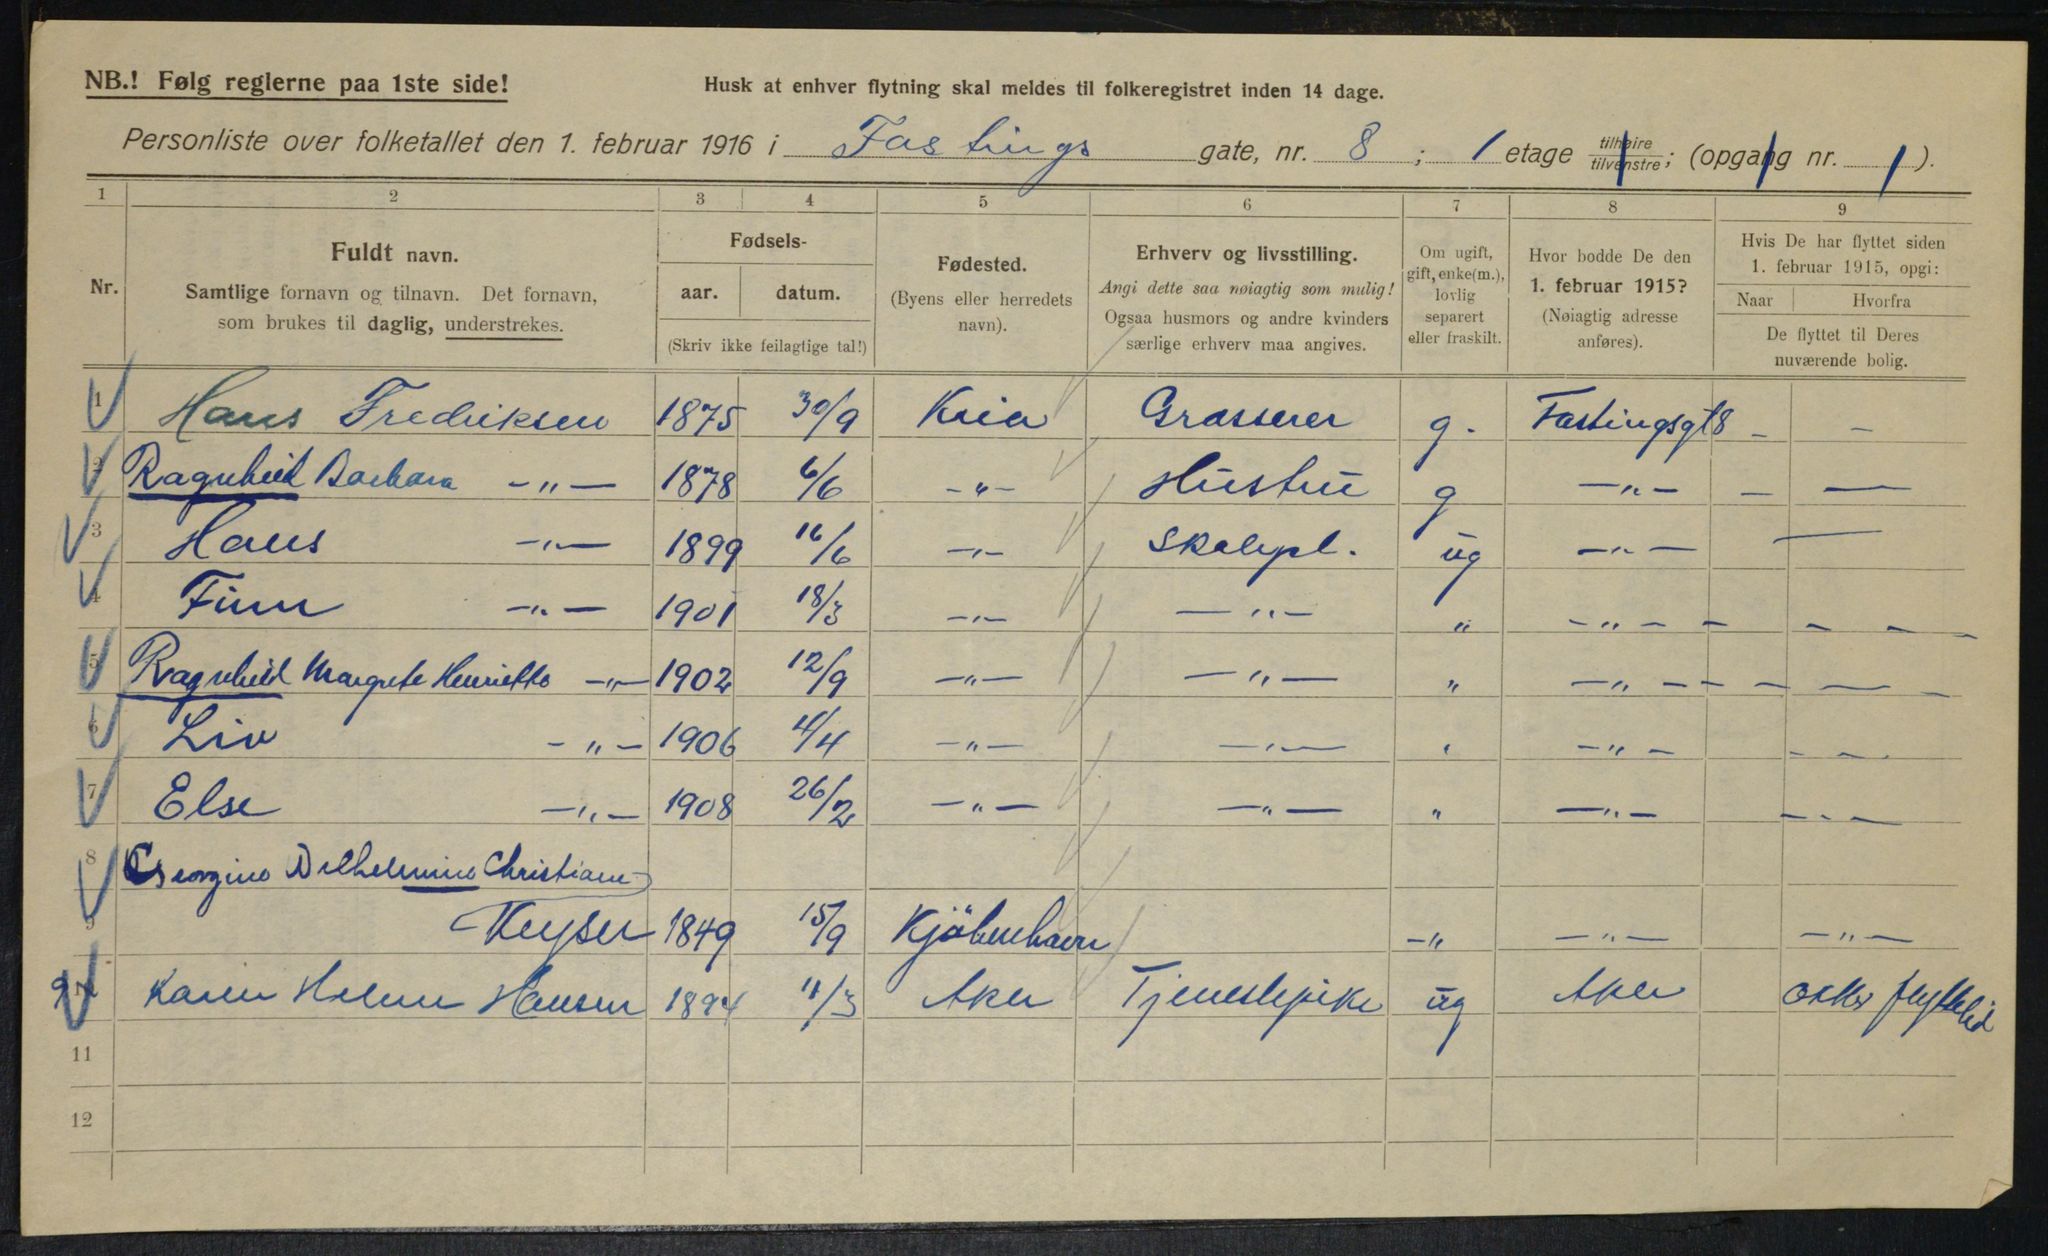 NB.! Følg reglerne paa 1ste side!
Husk at enhver flytning skal meldes til folkeregistret inden 14 dage.
Personliste over folketallet den 1. februar 1916 i Fastings gate, nr. 8 ; 1 etage tilhøire/tilvenstre; (opgang nr. 1).
1 2 3 4 5 6 7 8 9
Nr.
Fuldt navn.
Samtlige fornavn og tilnavn. Det fornavn,
som brukes til daglig, understrekes.
Fødsels-
aar. datum.
(Skriv ikke feilagtige tal!)
Fødested.
(Byens eller herredets
navn).
Erhverv og livsstilling.
Angi dette saa nøiagtig som mulig!
Ogsaa husmors og andre kvinders
særlige erhverv maa angives.
Om ugift,
gift, enke(m.),
lovlig
separert
eller fraskilt.
Hvor bodde De den
1. februar 1915?
(Nøiagtig adresse
anføres).
Hvis De har flyttet siden
1. februar 1915, opgi:
Naar Hvorfra
De flyttet til Deres
nuværende bolig.
1 Hans Fredriksen 1875 30/9 Kria Grosserer g. Fastingsgt 8 – –
2 Ragnhild Barbara –„– 1878 6/6 –„– Hustru g –„– – –
3 Hans –„– 1899 16/6 –„– Skolepl. ug –„– –
4 Finn –„– 1901 18/3 –„– –„– „ –„– – – – –
5 Ragnhild Margrete Henriette –„– 1902 12/9 –„– –„– „ –„– – – – –
6 Liv –„– 1906 4/4 –„– –„– „ –„– – – –
7 Else –„– 1908 26/2 –„– –„– „ –„– – – –
8 Georgine Vilhelmine Christiane
9 Keyser 1849 15/9 Kjöbenhavn –„ –„– –„–
9 Karen Helene Hansen 1894 11/3 Aker Tjenestepike ug Aker oktbr flyttetid
11
12